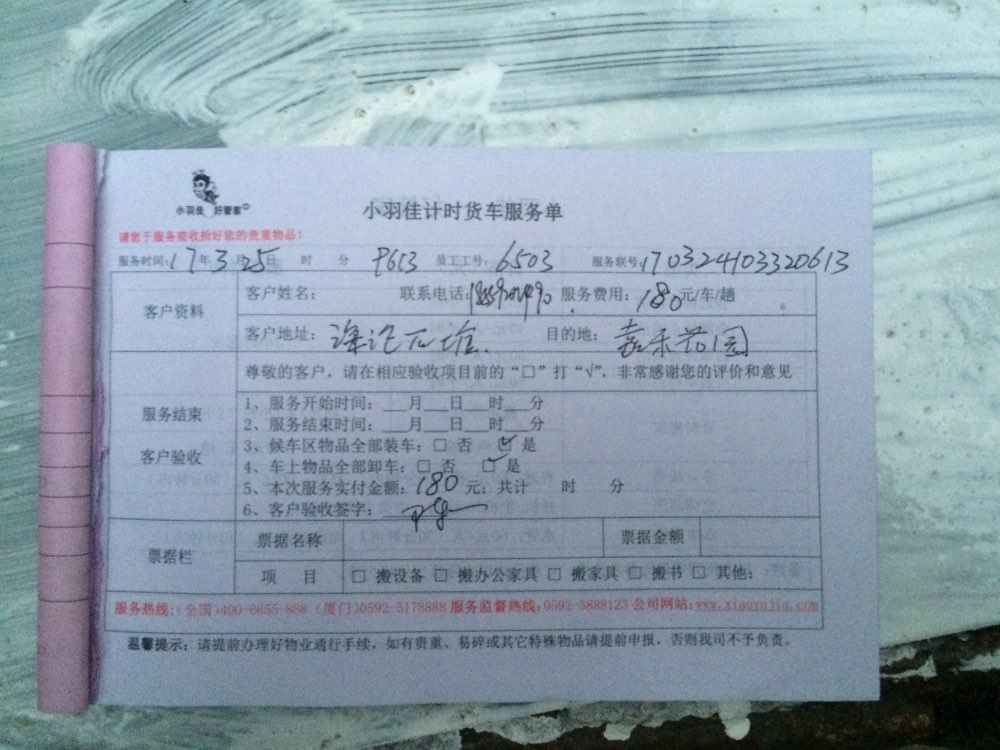 小羽佳 好管家
小羽佳计时货车服务单
请您于服务前收拾好您的贵重物品！
服务时间：17年3月25日 时 分 员工工号：6503 服务联号：170324103320613
客户资料
客户姓名： 联系电话： 服务费用：180元/车/趟
客户地址： 目的地：嘉禾花园
尊敬的客户，请在相应验收项目前的“□”打“√”，非常感谢您的评价和意见
服务结束
客户验收
1、服务开始时间：___月___日___时___分
2、服务结束时间：___月___日___时___分
3、候车区物品全部装车：□ 否 ☑ 是
4、车上物品全部卸车：□ 否 ☑ 是
5、本次服务实付金额：180元；共计 时 分
6、客户验收签字：
票据栏
票据名称 票据金额
项 目 □ 搬设备 □ 搬办公家具 □ 搬家具 □ 搬书 □ 其他：
服务热线：(全国)400-6655-888 (厦门)0592-5178888 服务监督热线：0592-5888123 公司网站：www.xiaoyujia.com
温馨提示：请提前办理好物业通行手续，如有贵重、易碎或其它特殊物品请提前申报，否则我司不予负责。